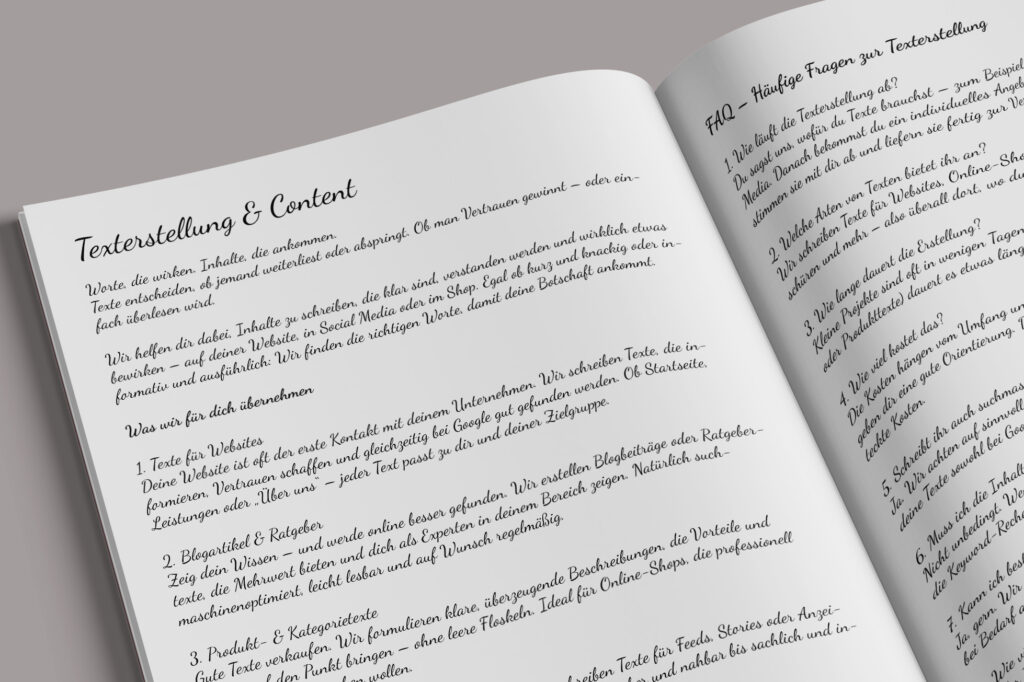 Texterstellung & Content
Worte, die wirken. Inhalte, die ankommen.
Texte entscheiden, ob jemand weiterliest oder abspringt. Ob man Vertrauen gewinnt – oder ein-
fach überlesen wird.
Wir helfen dir dabei, Inhalte zu schreiben, die klar sind, verstanden werden und wirklich etwas
bewirken – auf deiner Website, in Social Media oder im Shop. Egal ob kurz und knackig oder in-
formativ und ausführlich: Wir finden die richtigen Worte, damit deine Botschaft ankommt.
Was wir für dich übernehmen
1. Texte für Websites
Deine Website ist oft der erste Kontakt mit deinem Unternehmen. Wir schreiben Texte, die in-
formieren, Vertrauen schaffen und gleichzeitig bei Google gut gefunden werden. Ob Startseite,
Leistungen oder „Über uns“ – jeder Text passt zu dir und deiner Zielgruppe.
2. Blogartikel & Ratgeber
Zeig dein Wissen – und werde online besser gefunden. Wir erstellen Blogbeiträge oder Ratgeber-
texte, die Mehrwert bieten und dich als Experten in deinem Bereich zeigen. Natürlich such-
maschinenoptimiert, leicht lesbar und auf Wunsch regelmäßig.
3. Produkt- & Kategorietexte
Gute Texte verkaufen. Wir formulieren klare, überzeugende Beschreibungen, die Vorteile und
den Punkt bringen – ohne leere Floskeln. Ideal für Online-Shops, die professionell
wollen.
Texte für Feeds, Stories oder Anzei-
und nahbar bis sachlich und in-
FAQ – Häufige Fragen zur Texterstellung
1. Wie läuft die Texterstellung ab?
Du sagst uns, wofür du Texte brauchst – zum Beispiel
Media. Danach bekommst du ein individuelles
stimmen sie mit dir ab und liefern sie fertig zur
2. Welche Arten von Texten bietet ihr an?
Wir schreiben Texte für Websites, Online-
schüren und mehr – also überall dort, wo
3. Wie lange dauert die Erstellung?
Kleine Projekte sind oft in wenigen Tagen
oder Produkttexte) dauert es etwas
4. Wie viel kostet das?
Die Kosten hängen vom Umfang
geben dir eine gute Orientierung.
teckte Kosten.
5. Schreibt ihr auch
Ja. Wir achten auf
deine Texte sowohl bei
6. Muss ich die
Nicht unbedingt.
die Keyword-
7. Kann ich
Ja, gern. Wir
bei Bedarf
Wie